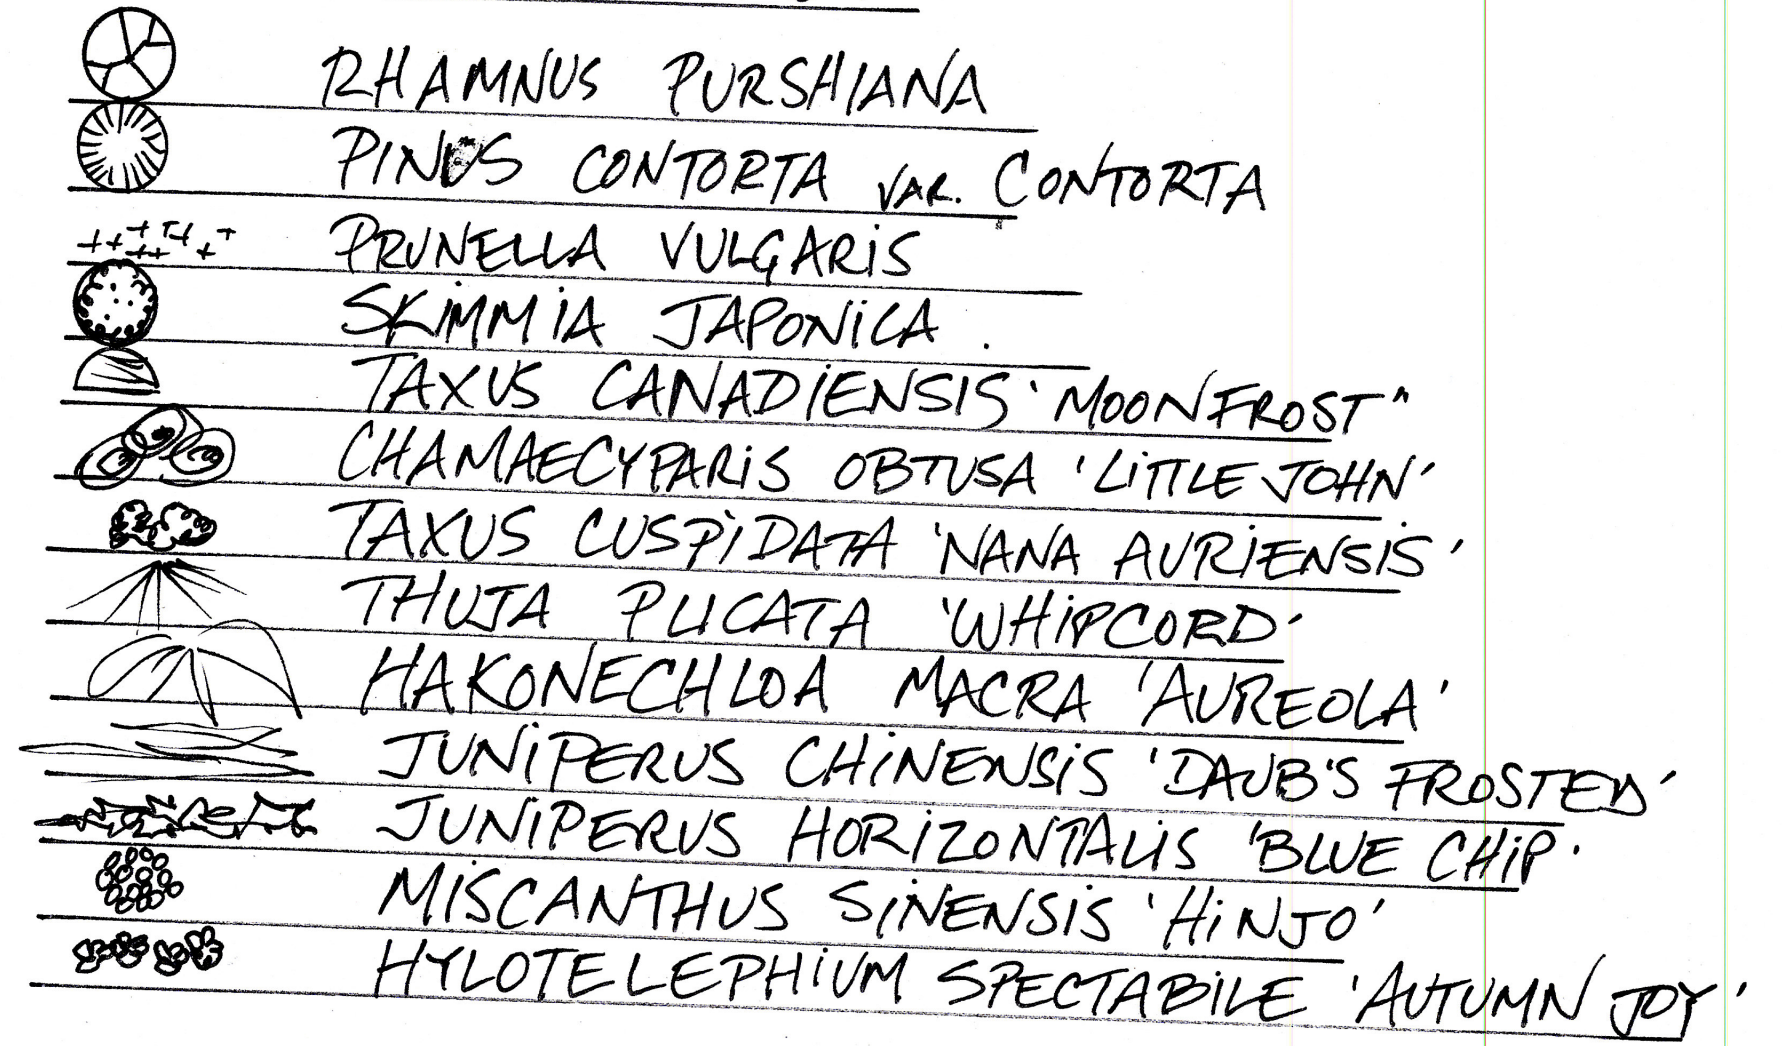 RHAMNUS PURSHIANA
PINUS CONTORTA VAR. CONTORTA
PRUNELLA VULGARIS
SKIMMIA JAPONICA.
TAXUS CANADIENSIS 'MOONFROST"
CHAMAECYPARIS OBTUSA 'LITTLE JOHN'
TAXUS CUSPIDATA 'NANA AURIENSIS'
THUJA PLICATA 'WHIPCORD'
HAKONECHLOA MACRA 'AUREOLA'
JUNIPERUS CHINENSIS 'DAUB'S FROSTED'
JUNIPERUS HORIZONTALIS 'BLUE CHIP'
MISCANTHUS SINENSIS 'HINJO'
HYLOTELEPHIUM SPECTABILE 'AUTUMN JOY'